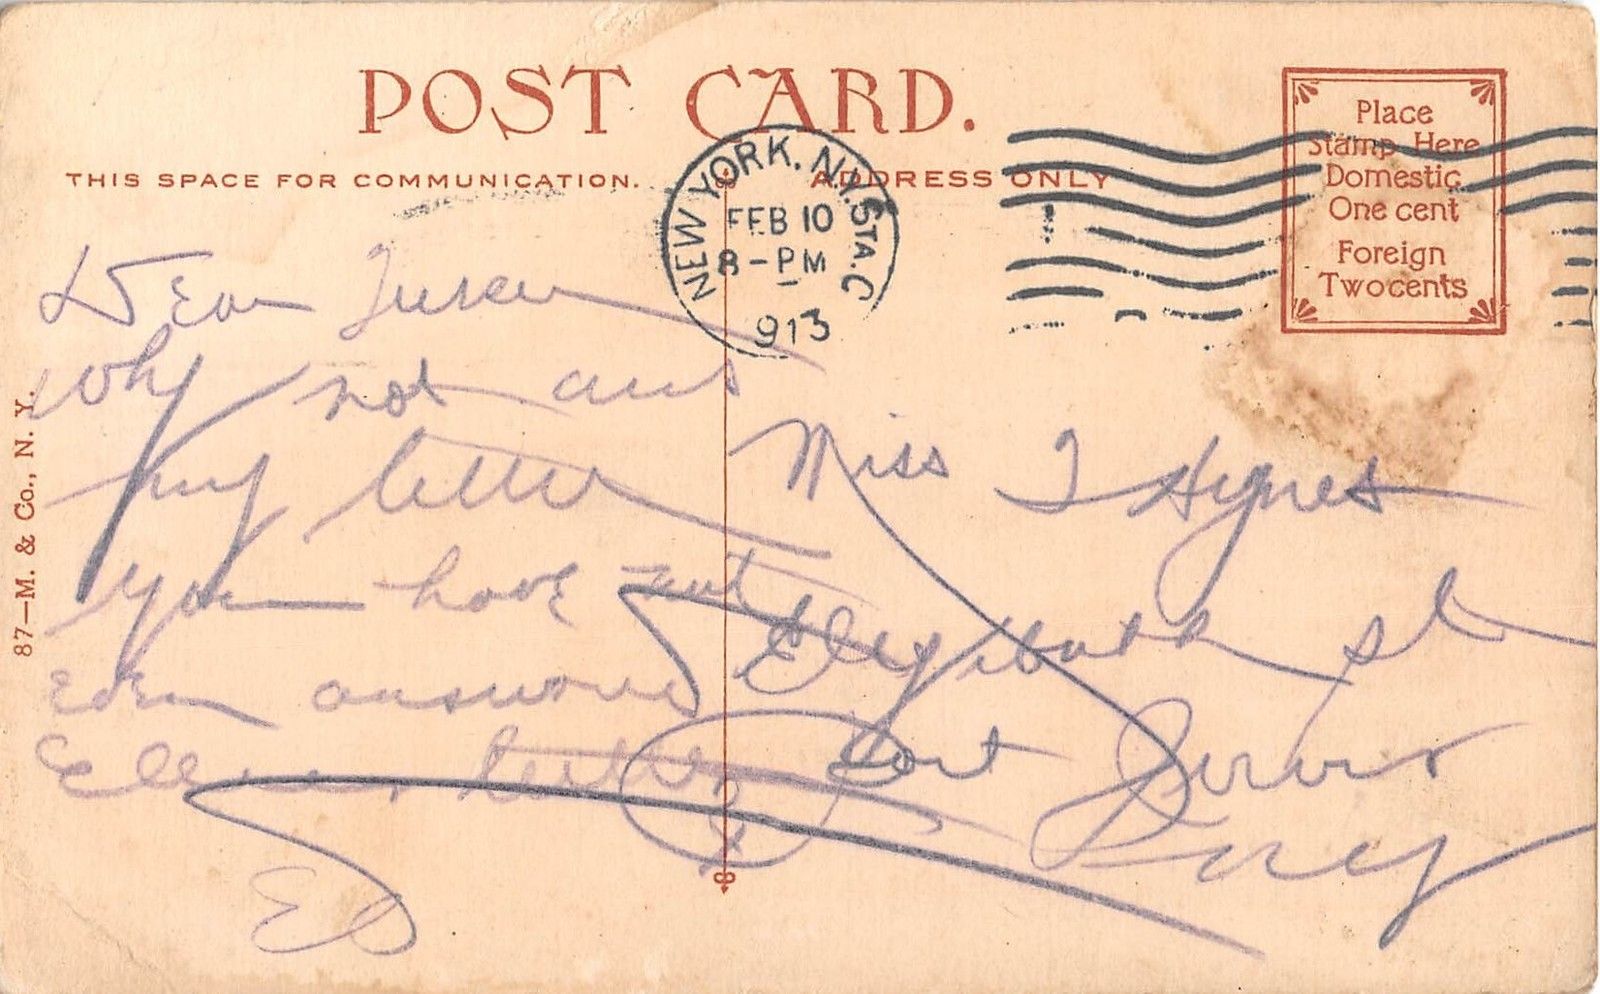 POST CARD.
THIS SPACE FOR COMMUNICATION.
ADDRESS ONLY
NEW YORK, N.Y. STA. C
FEB 10
8-PM
1913
Place
Stamp Here
Domestic
One cent
Foreign
Two cents
87—M. & Co., N. Y.
Dear
why not ans
my letter
you have not
even
Ellen letter
Ed
Miss T Hynes
st
Port Jervis
NY